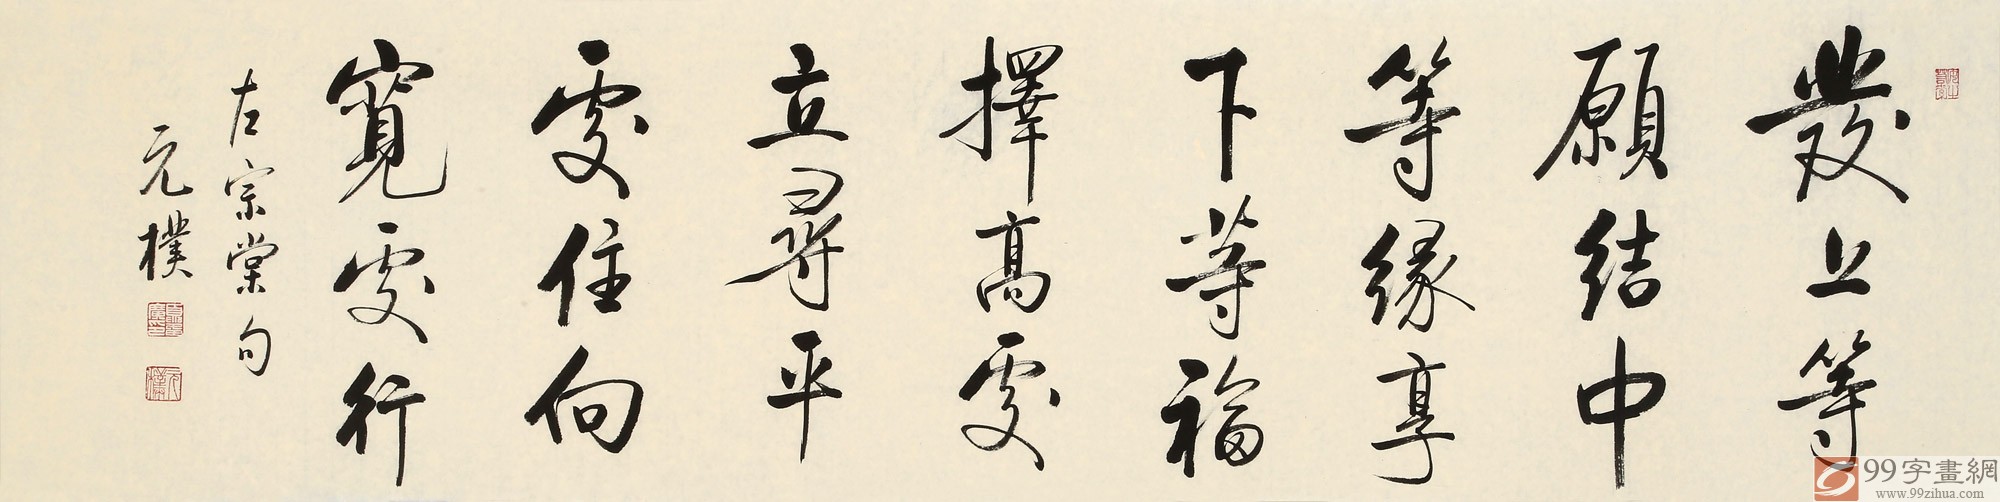 發上等
願結中
等緣享
下等福
擇高處
立尋平
處住向
寬處行
左宗棠句
元樸
元樸
99字畫網
www.99zihua.com